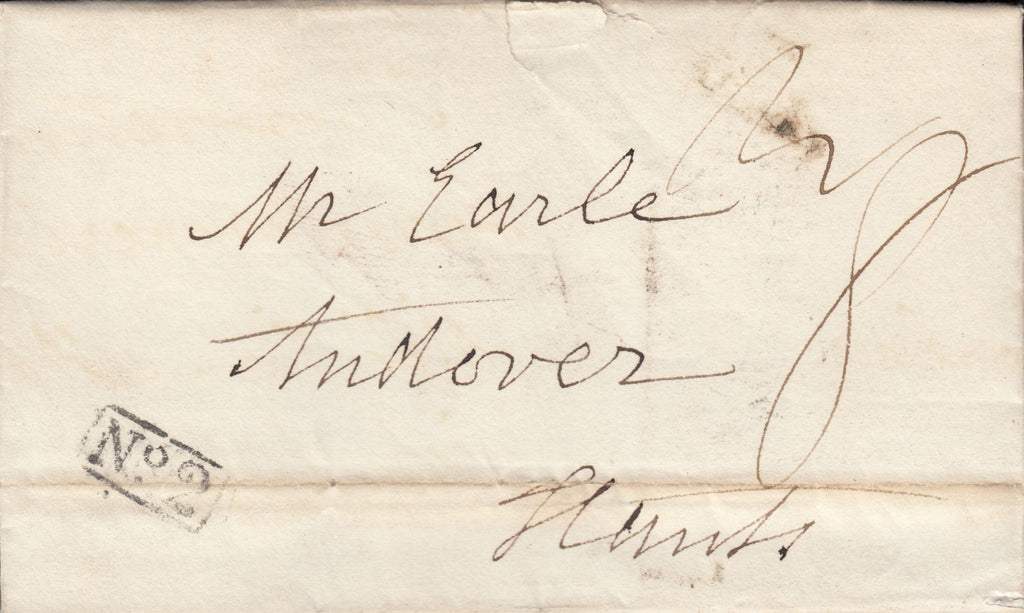 Mr Earle
Andover
Hants
No. 2